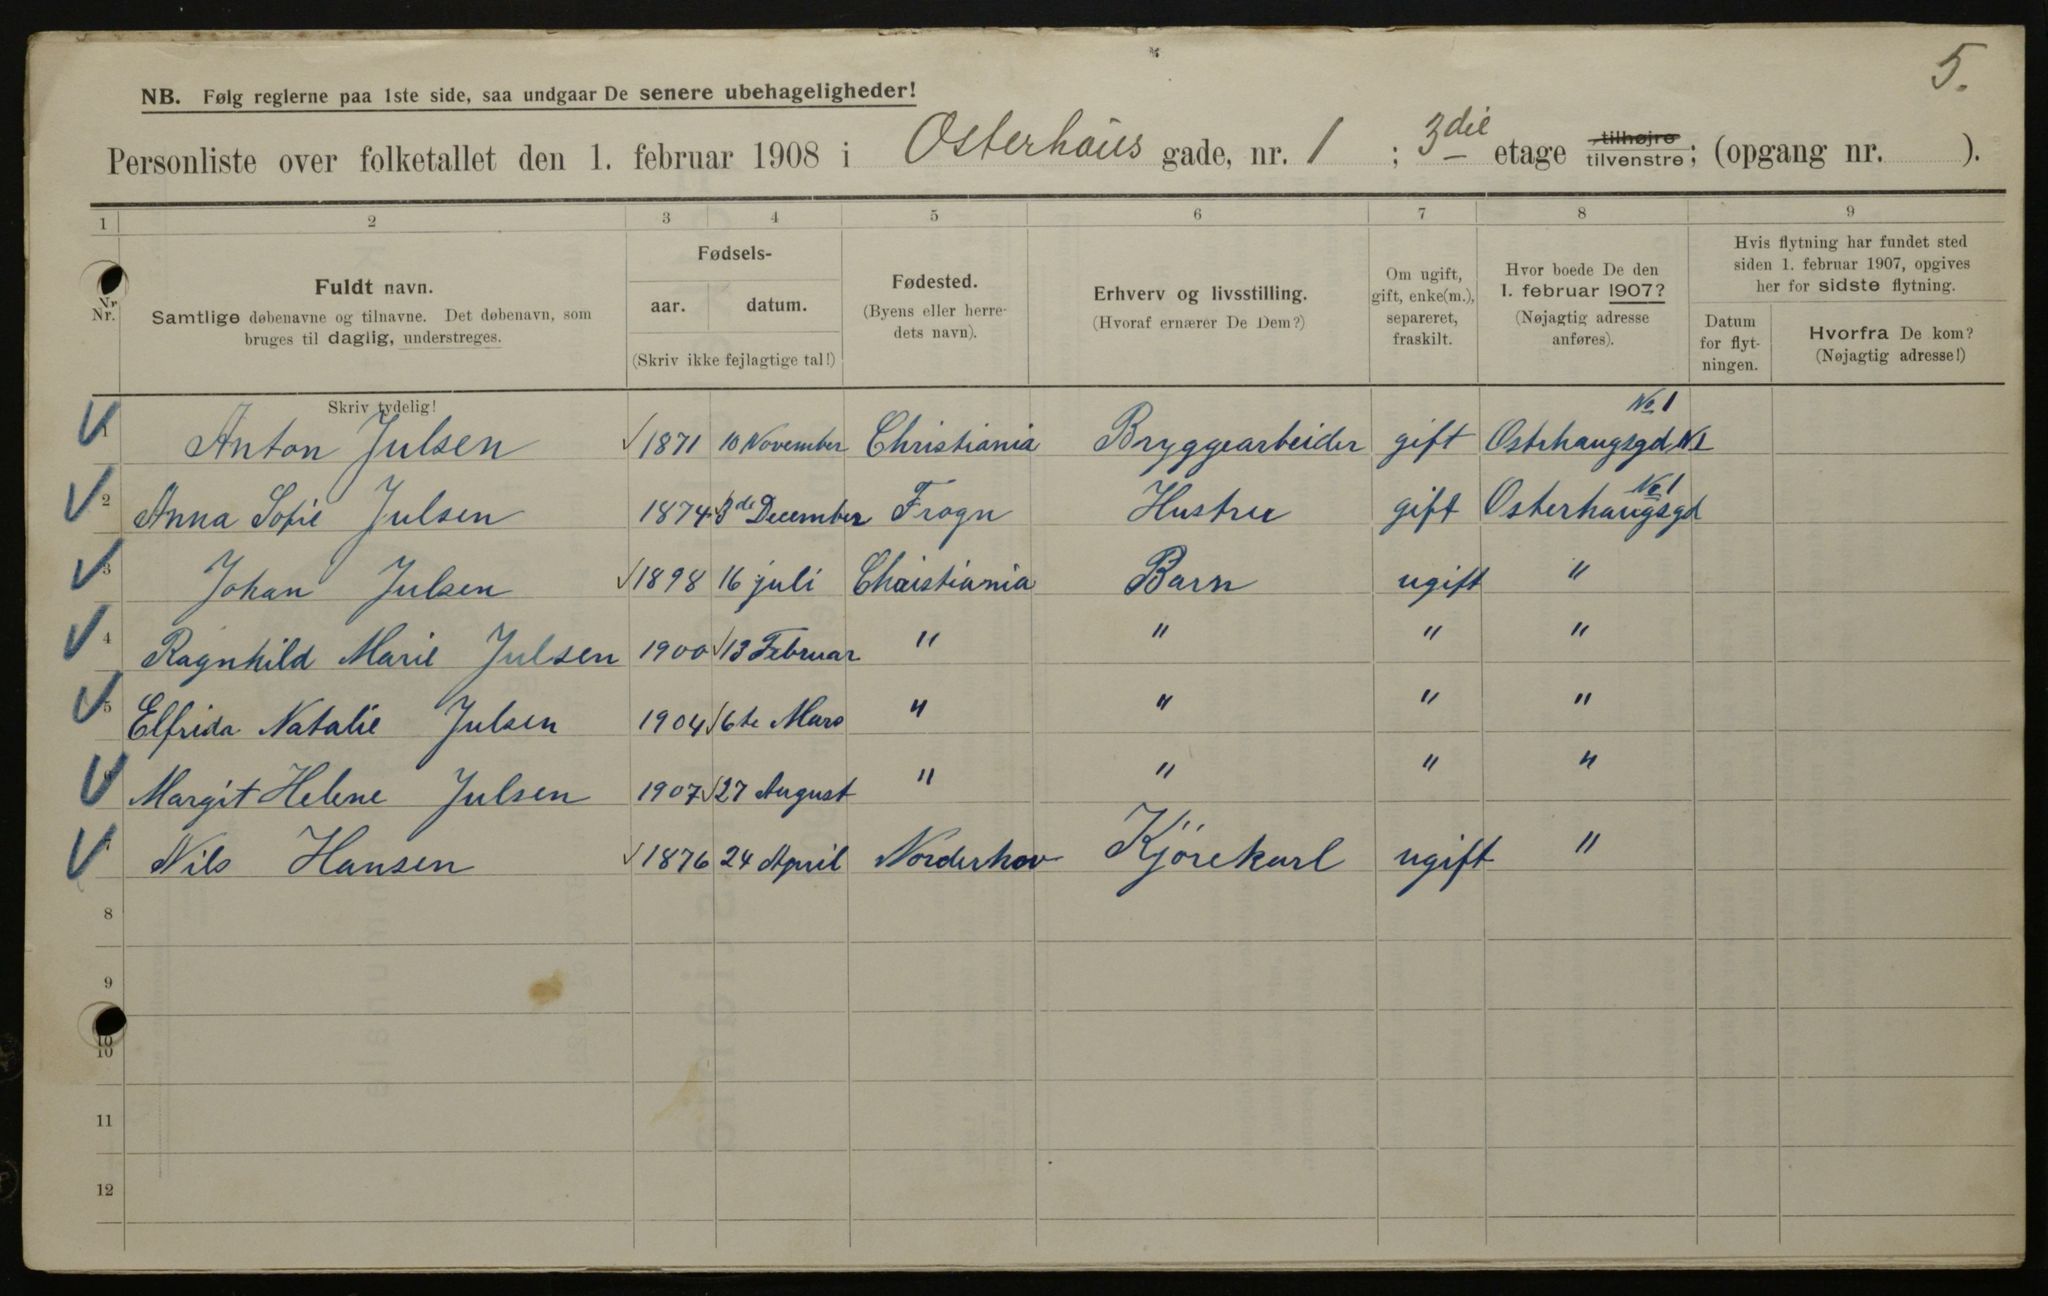 5.
NB. Følg reglerne paa 1ste side, saa undgaar De senere ubehageligheder!
Personliste over folketallet den 1. februar 1908 i Osterhaus gade, nr. 1 ; 3die etage tilhøjre tilvenstre; (opgang nr. ).
1 2 3 4 5 6 7 8 9
Nr. Fuldt navn. Samtlige døbenavne og tilnavne. Det døbenavn, som bruges til daglig, understreges.
Fødsels- aar. datum. (Skriv ikke fejlagtige tal!)
Fødested. (Byens eller herredets navn).
Erhverv og livsstilling. (Hvoraf ernærer De Dem?)
Om ugift, gift, enke(m.), separeret, fraskilt.
Hvor boede De den 1. februar 1907? (Nøjagtig adresse anføres).
Hvis flytning har fundet sted siden 1. februar 1907, opgives her for sidste flytning.
Datum for flytningen. Hvorfra De kom? (Nøjagtig adresse!)
Skriv tydelig!
1 Anton Julsen 1871 10 November Christiania Bryggearbeider gift Osterhaugsgd No 1
2 Anna Sofie Julsen 1874 3de December Frogn Hustru gift Osterhaugsgd No 1
3 Johan Julsen 1898 16 juli Christiania Barn ugift "
4 Ragnhild Marie Julsen 1900 13 Februar " " " "
5 Elfrida Natalie Julsen 1904 6te Mars " " " "
6 Margit Helene Julsen 1907 27 August " " " "
7 Nils Hansen 1876 24 April Norderhov Kjörekarl ugift "
8
9
10
11
12